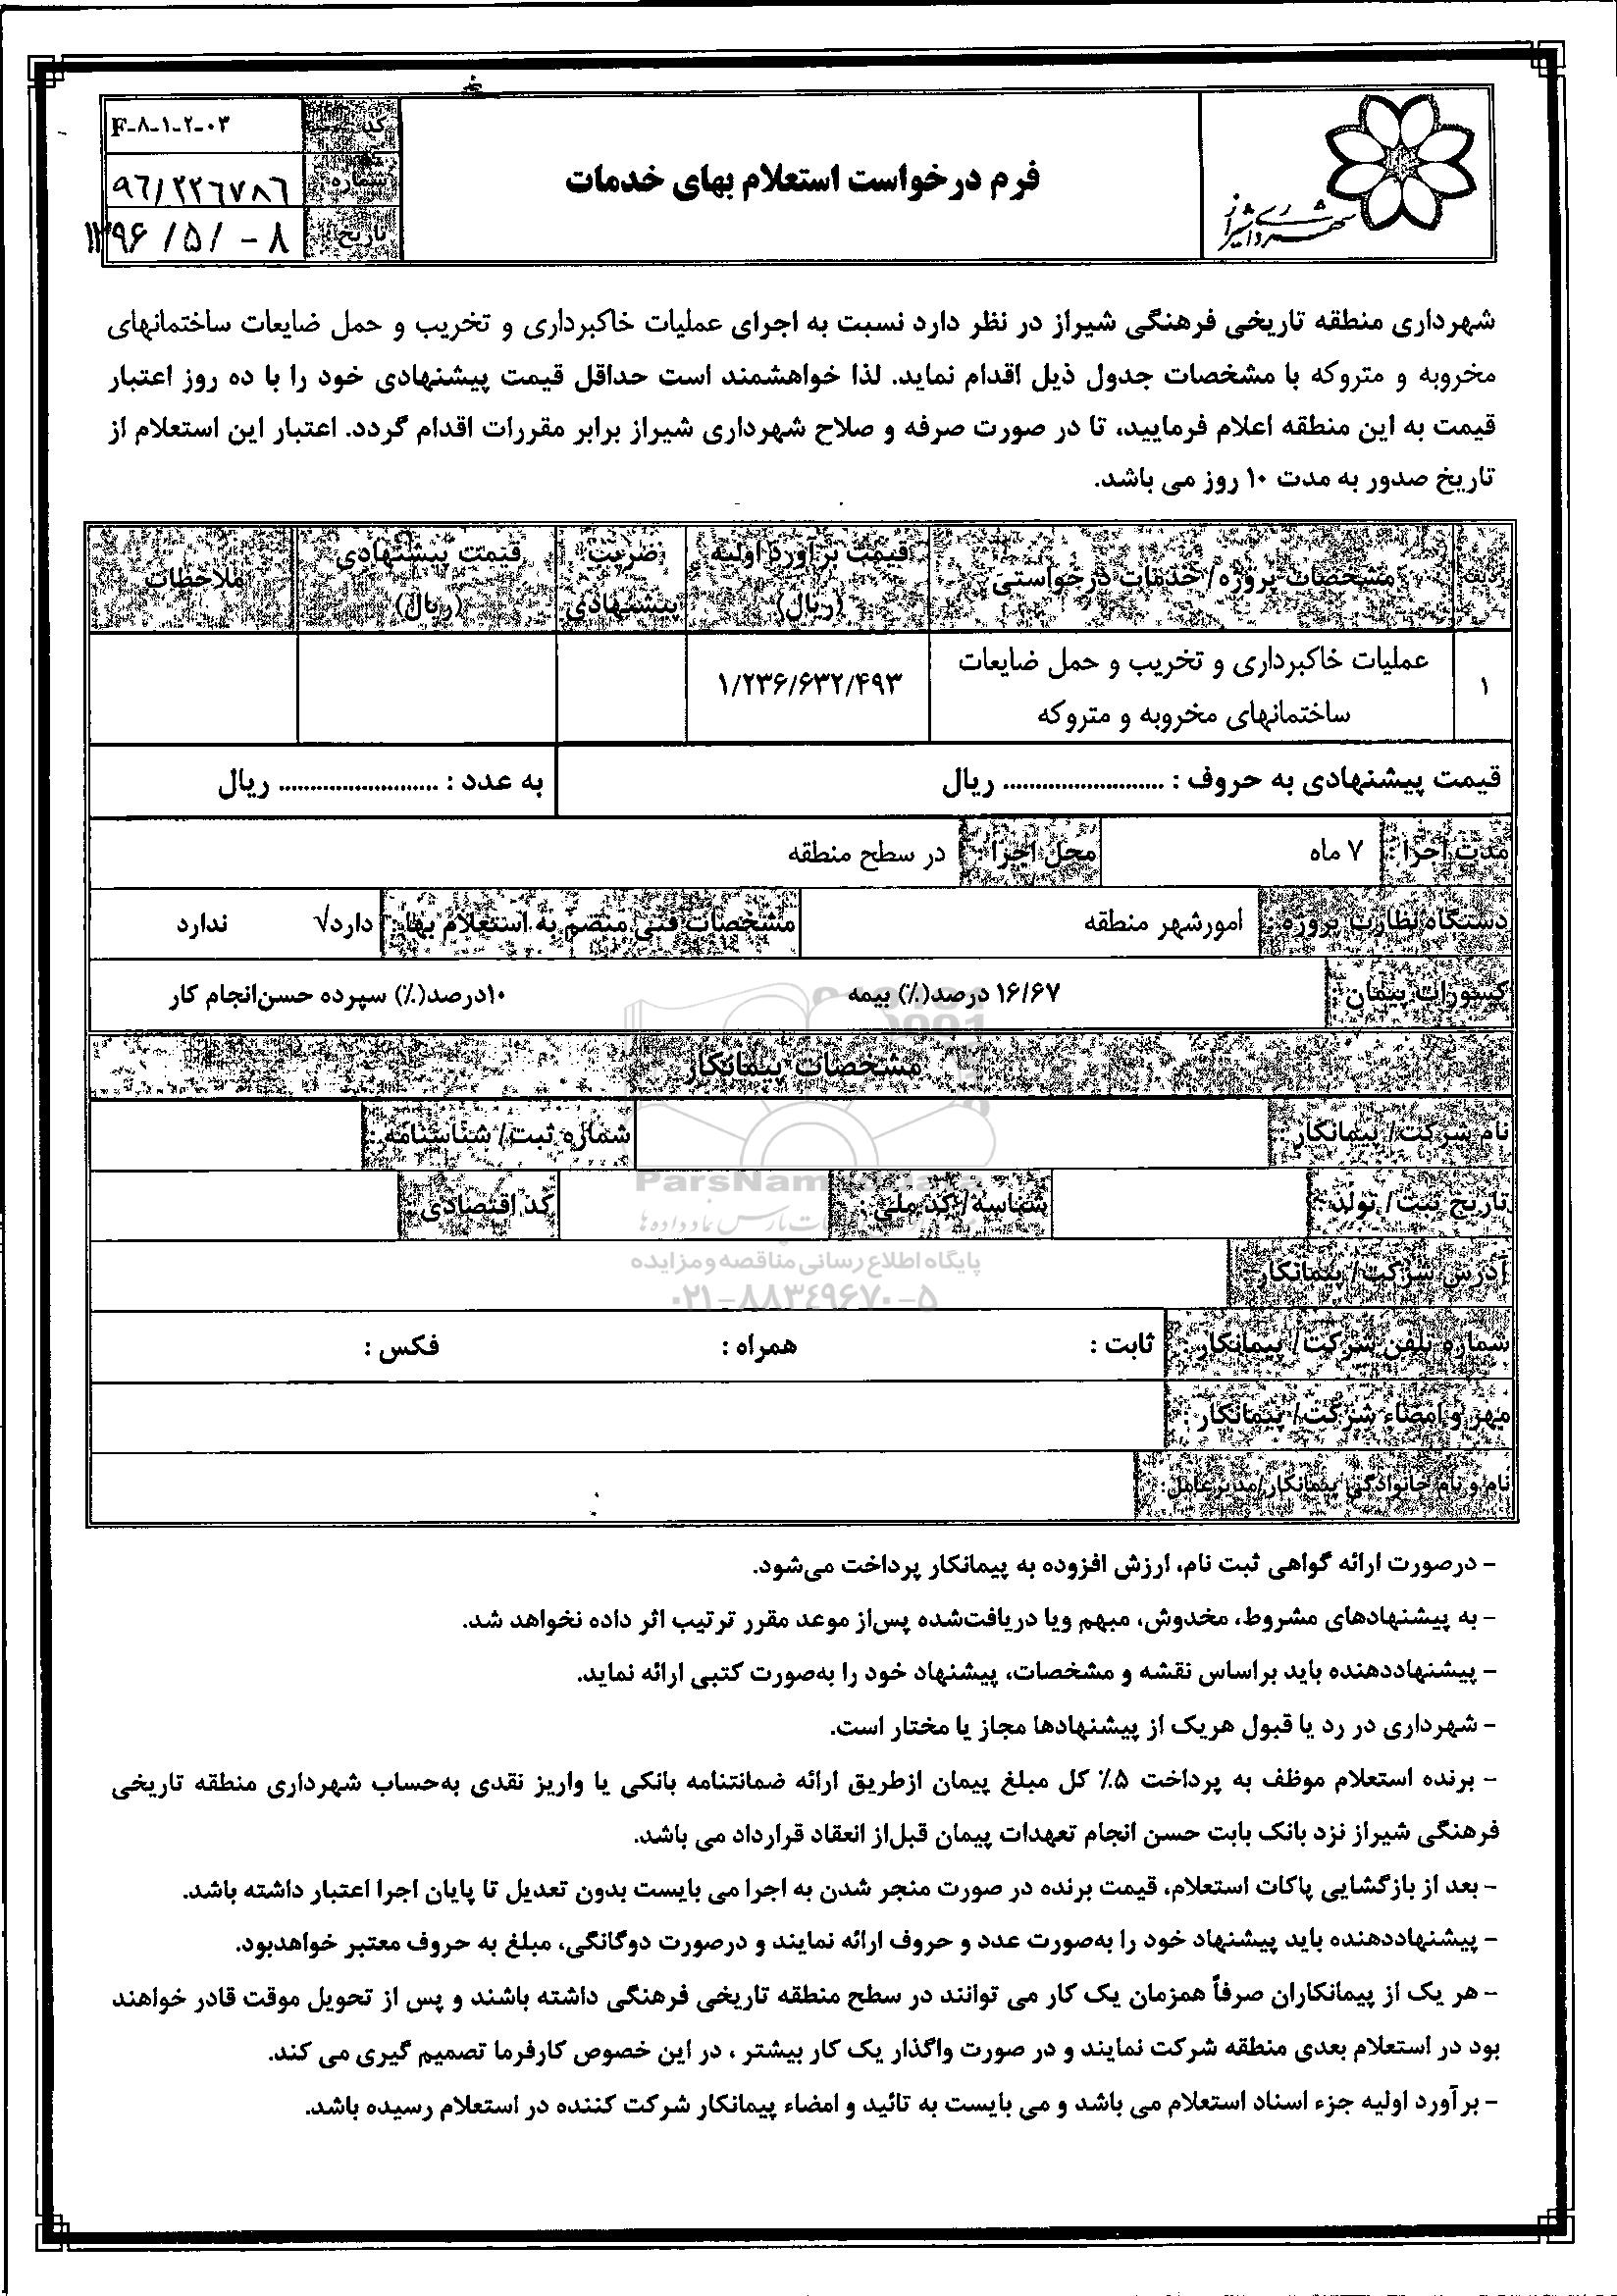 شهرداری شیراز
فرم درخواست استعلام بهای خدمات
کد
F-۸-۱-۲-۰۳
شماره
۹۶/۲۲۶۷۸۶
تاریخ
۱۳۹۶/۵/-۸
شهرداری منطقه تاریخی فرهنگی شیراز در نظر دارد نسبت به اجرای عملیات خاکبرداری و تخریب و حمل ضایعات ساختمانهای
مخروبه و متروکه با مشخصات جدول ذیل اقدام نماید. لذا خواهشمند است حداقل قیمت پیشنهادی خود را با ده روز اعتبار
قیمت به این منطقه اعلام فرمایید، تا در صورت صرفه و صلاح شهرداری شیراز برابر مقررات اقدام گردد. اعتبار این استعلام از
تاریخ صدور به مدت ۱۰ روز می باشد.
ردیف
مشخصات پروژه/ خدمات درخواستی
قیمت برآورد اولیه
(ریال)
ضریب
پیشنهادی
قیمت پیشنهادی
(ریال)
ملاحظات
۱
عملیات خاکبرداری و تخریب و حمل ضایعات
ساختمانهای مخروبه و متروکه
۱/۲۳۶/۶۳۲/۴۹۳
قیمت پیشنهادی به حروف : ......................... ریال
به عدد : ......................... ریال
مدت اجرا : ۷ ماه
محل اجرا : در سطح منطقه
دستگاه نظارت پروژه : امورشهر منطقه
مشخصات فنی منضم به استعلام بها : دارد√ ندارد
کسورات پیمان : ۱۶/۶۷ درصد(٪) بیمه ۱۰درصد(٪) سپرده حسن‌انجام کار
مشخصات پیمانکار
نام شرکت/ پیمانکار :
شماره ثبت/ شناسنامه :
تاریخ ثبت/ تولد :
شناسه/ کد ملی :
کد اقتصادی :
آدرس شرکت/ پیمانکار :
شماره تلفن شرکت/ پیمانکار : ثابت : همراه : فکس :
مهر و امضاء شرکت/ پیمانکار :
نام و نام خانوادگی پیمانکار/مدیرعامل:
پایگاه اطلاع رسانی مناقصه و مزایده
۰۲۱-۸۸۳۴۹۶۷۰-۵
- درصورت ارائه گواهی ثبت نام، ارزش افزوده به پیمانکار پرداخت می‌شود.
- به پیشنهادهای مشروط، مخدوش، مبهم ویا دریافت‌شده پس‌از موعد مقرر ترتیب اثر داده نخواهد شد.
- پیشنهاددهنده باید براساس نقشه و مشخصات، پیشنهاد خود را به‌صورت کتبی ارائه نماید.
- شهرداری در رد یا قبول هریک از پیشنهادها مجاز یا مختار است.
- برنده استعلام موظف به پرداخت ۵٪ کل مبلغ پیمان ازطریق ارائه ضمانتنامه بانکی یا واریز نقدی به‌حساب شهرداری منطقه تاریخی
فرهنگی شیراز نزد بانک بابت حسن انجام تعهدات پیمان قبل‌از انعقاد قرارداد می باشد.
- بعد از بازگشایی پاکات استعلام، قیمت برنده در صورت منجر شدن به اجرا می بایست بدون تعدیل تا پایان اجرا اعتبار داشته باشد.
- پیشنهاددهنده باید پیشنهاد خود را به‌صورت عدد و حروف ارائه نمایند و درصورت دوگانگی، مبلغ به حروف معتبر خواهدبود.
- هر یک از پیمانکاران صرفاً همزمان یک کار می توانند در سطح منطقه تاریخی فرهنگی داشته باشند و پس از تحویل موقت قادر خواهند
بود در استعلام بعدی منطقه شرکت نمایند و در صورت واگذار یک کار بیشتر ، در این خصوص کارفرما تصمیم گیری می کند.
- برآورد اولیه جزء اسناد استعلام می باشد و می بایست به تائید و امضاء پیمانکار شرکت کننده در استعلام رسیده باشد.